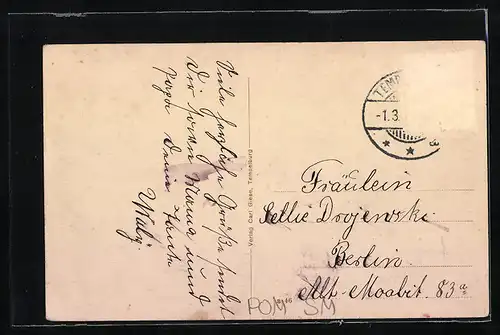 Viele herzliche Grüße sendet
Dir sowie Mama und
Papa Deine Tante
Verlag Carl Giese, Tempelburg
TEMP
-1.3.
Fräulein
Nellie Drojewski
Berlin
Alt-Moabit 83a
POM SM